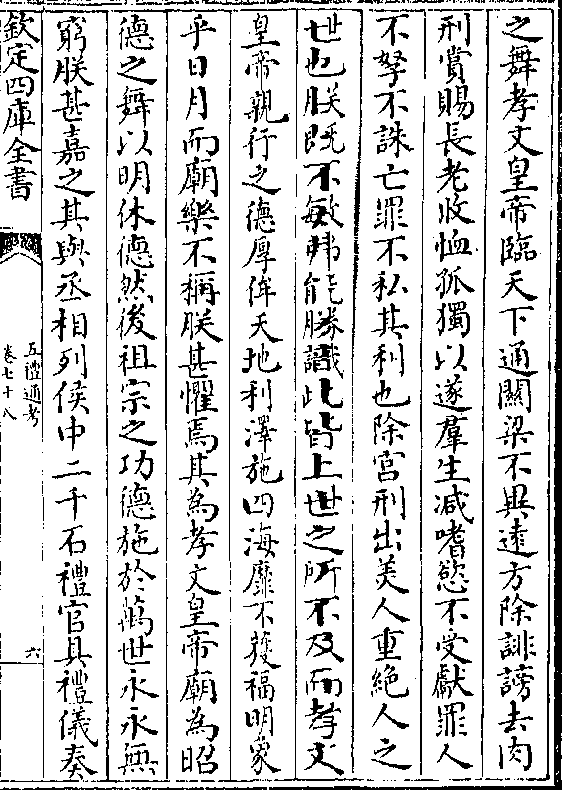 之舞孝文皇帝臨天下通關梁不異遠方除誹謗去肉
刑賞賜長老收恤孤獨以遂羣生减嗜慾不受獻罪人
不孥不誅亡罪不私其利也除宫刑出美人重絶人之
世也朕既不敏弗能勝識此皆上世之所不及而孝文
皇帝親行之德厚侔天地利澤施四海靡不獲福明象
乎日月而廟樂不稱朕甚懼焉其為孝文皇帝廟為昭
德之舞以明休德然後祖宗之功德施於萬世永永無
窮朕甚嘉之其與丞相列侯中二千石禮官具禮儀奏
欽定四庫全書
五禮通考
卷七十八
六